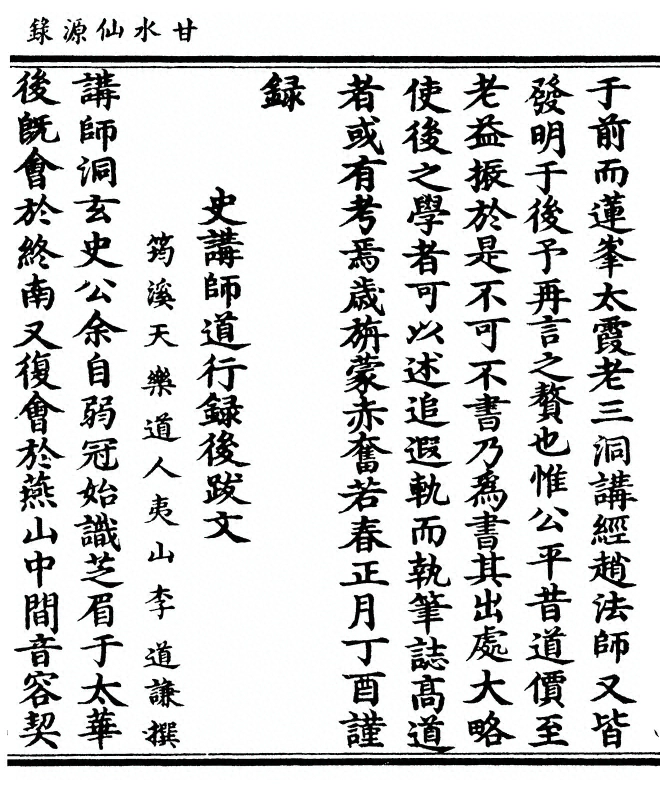 甘水仙源錄
于前而蓮峯太霞老三洞講經趙法師又皆
發明于後予再言之贅也惟公平昔道價至
老益振於是不可不書乃爲書其出處大略
使後之學者可以述追遐軌而執筆誌高道
者或有考焉歲旃蒙赤奮若春正月丁酉謹
録
史講師道行録後跋文
筠溪天樂道人夷山李道謙撰
講師洞玄史公余自弱冠始識芝眉于太華
後旣會於終南又復會於燕山中間音容契